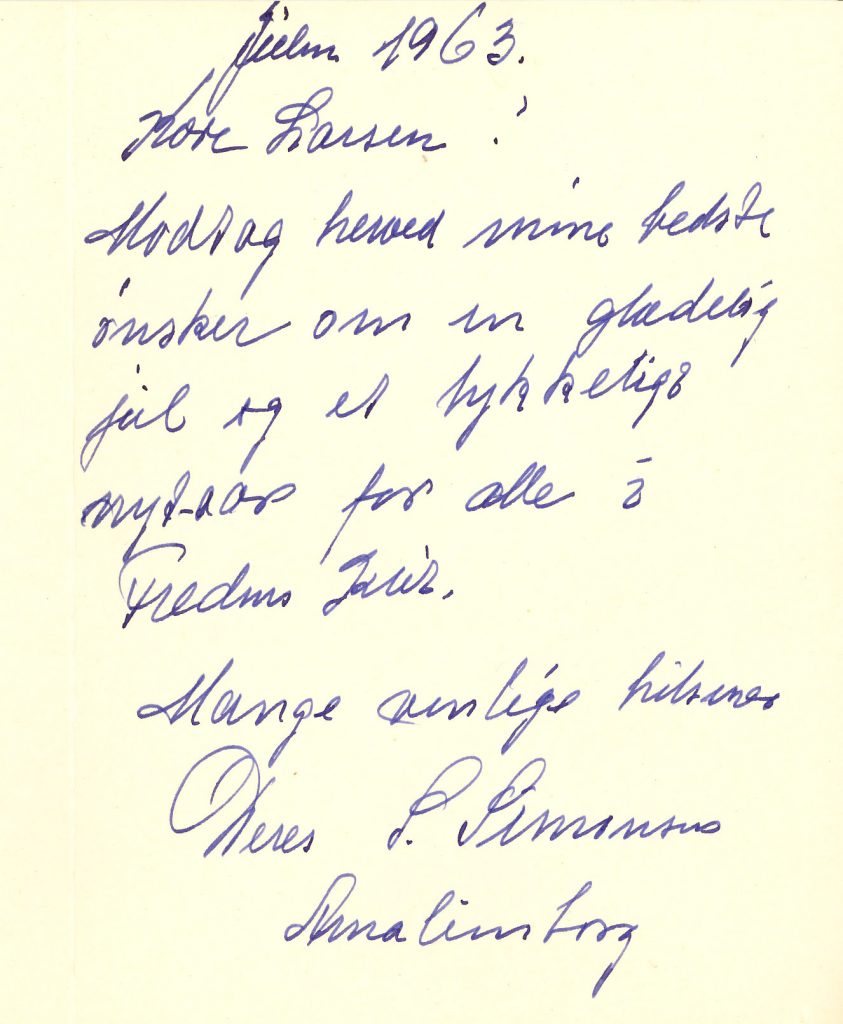 Julen 1963.
Kære Larsen!
Modtag herved mine bedste
ønsker om en glædelig
jul og et lykkeligt
nyt-aar for alle i
Fredens
Mange venlige hilsener
Deres S. Simonsen
Annalinsborg